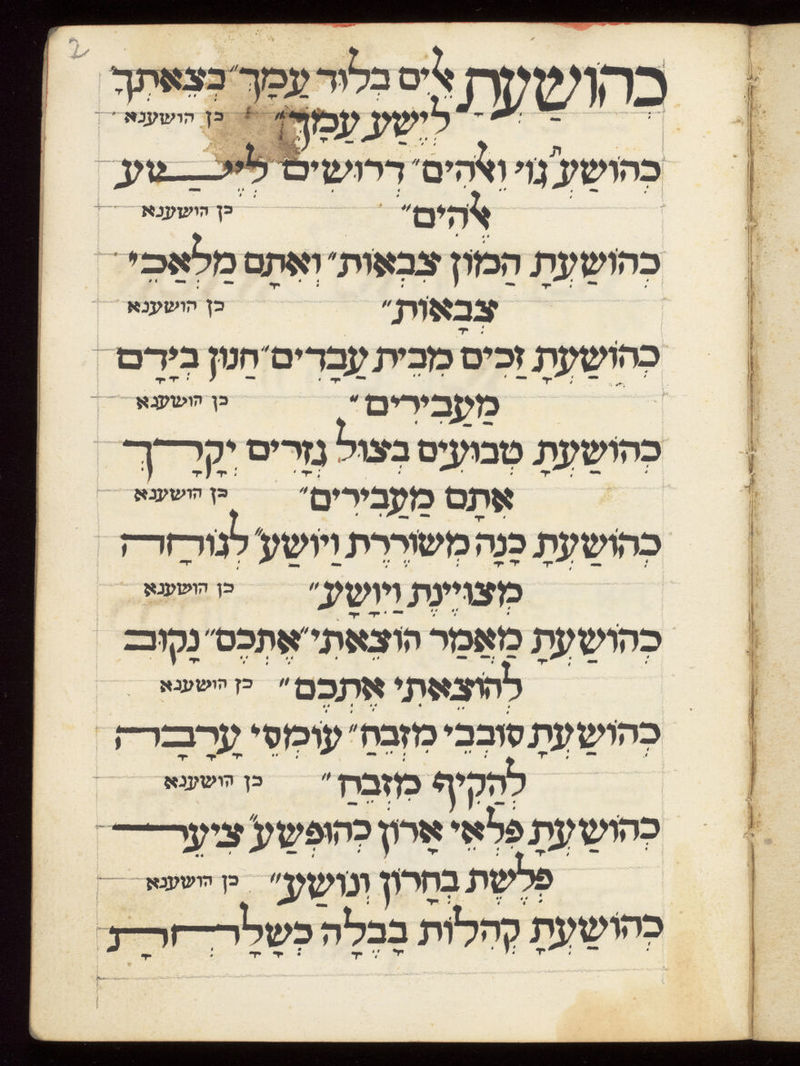 2
כְהוֹשַׁעְתָ ﭏֵים בְלוּד עַמָךְ״ בְצֵאתְךָ
לְיֵשַׁע עַמָךְ״ כן הושענא
כְהוֹשַׁעְתָ גוֹי וֵﭏהִים״ דְרוּשִׁים לְיֵשַׁע
ﭏֱהִים״ כן הושענא
כְהוֹשַׁעְתָ הֲמוֹן צְבָאוֹת״ וְאִתָם מַלְאֲכֵי
צְבָאוֹת״ כן הושענא
כְהוֹשַׁעְתָ זַכִים מִבֵית עֲבָדִים״ חַנוּן בְיָדָם
מַעֲבִידִים״ כן הושענא
כְהוֹשַׁעְתָ טְבוּעִים בְצוּל גְזָרִים יְקָרְךָ
אִתָם מַעֲבִירִים״ כן הושענא
כְהוֹשַׁעְתָ כַנָה מְשׁוֹרֶרֶת וַיוֹשַׁע״ לְגוֹחָה
מְצוּיֶינֶת וַיִוָשַׁע״ כן הושענא
כְהוֹשַׁעְתָ מַאֲמַר הוֹצֵאתִי״ אֶתְכֶם״ נָקוּב
לְהוֹצֵאתִי אֶתְכֶם״ כן הושענא
כְהוֹשַׁעְתָ סוֹבְבֵי מִזְבֵחַ״ עוֹמְסֵי עֲרָבָה
לְהַקִיף מִזְבֵחַ״ כן הושענא
כְהוֹשַׁעְתָ פִלְאֵי אָרוֹן כְהוּפְשַׁע״ צִיעֵר
פְלֶשֶׁת בְחָרוֹן וְנוֹשַׁע״ כן הושענא
כְהוֹשַׁעְתָ קְהִלוֹת בָבֶלָה כְשָׁלָחְתָ